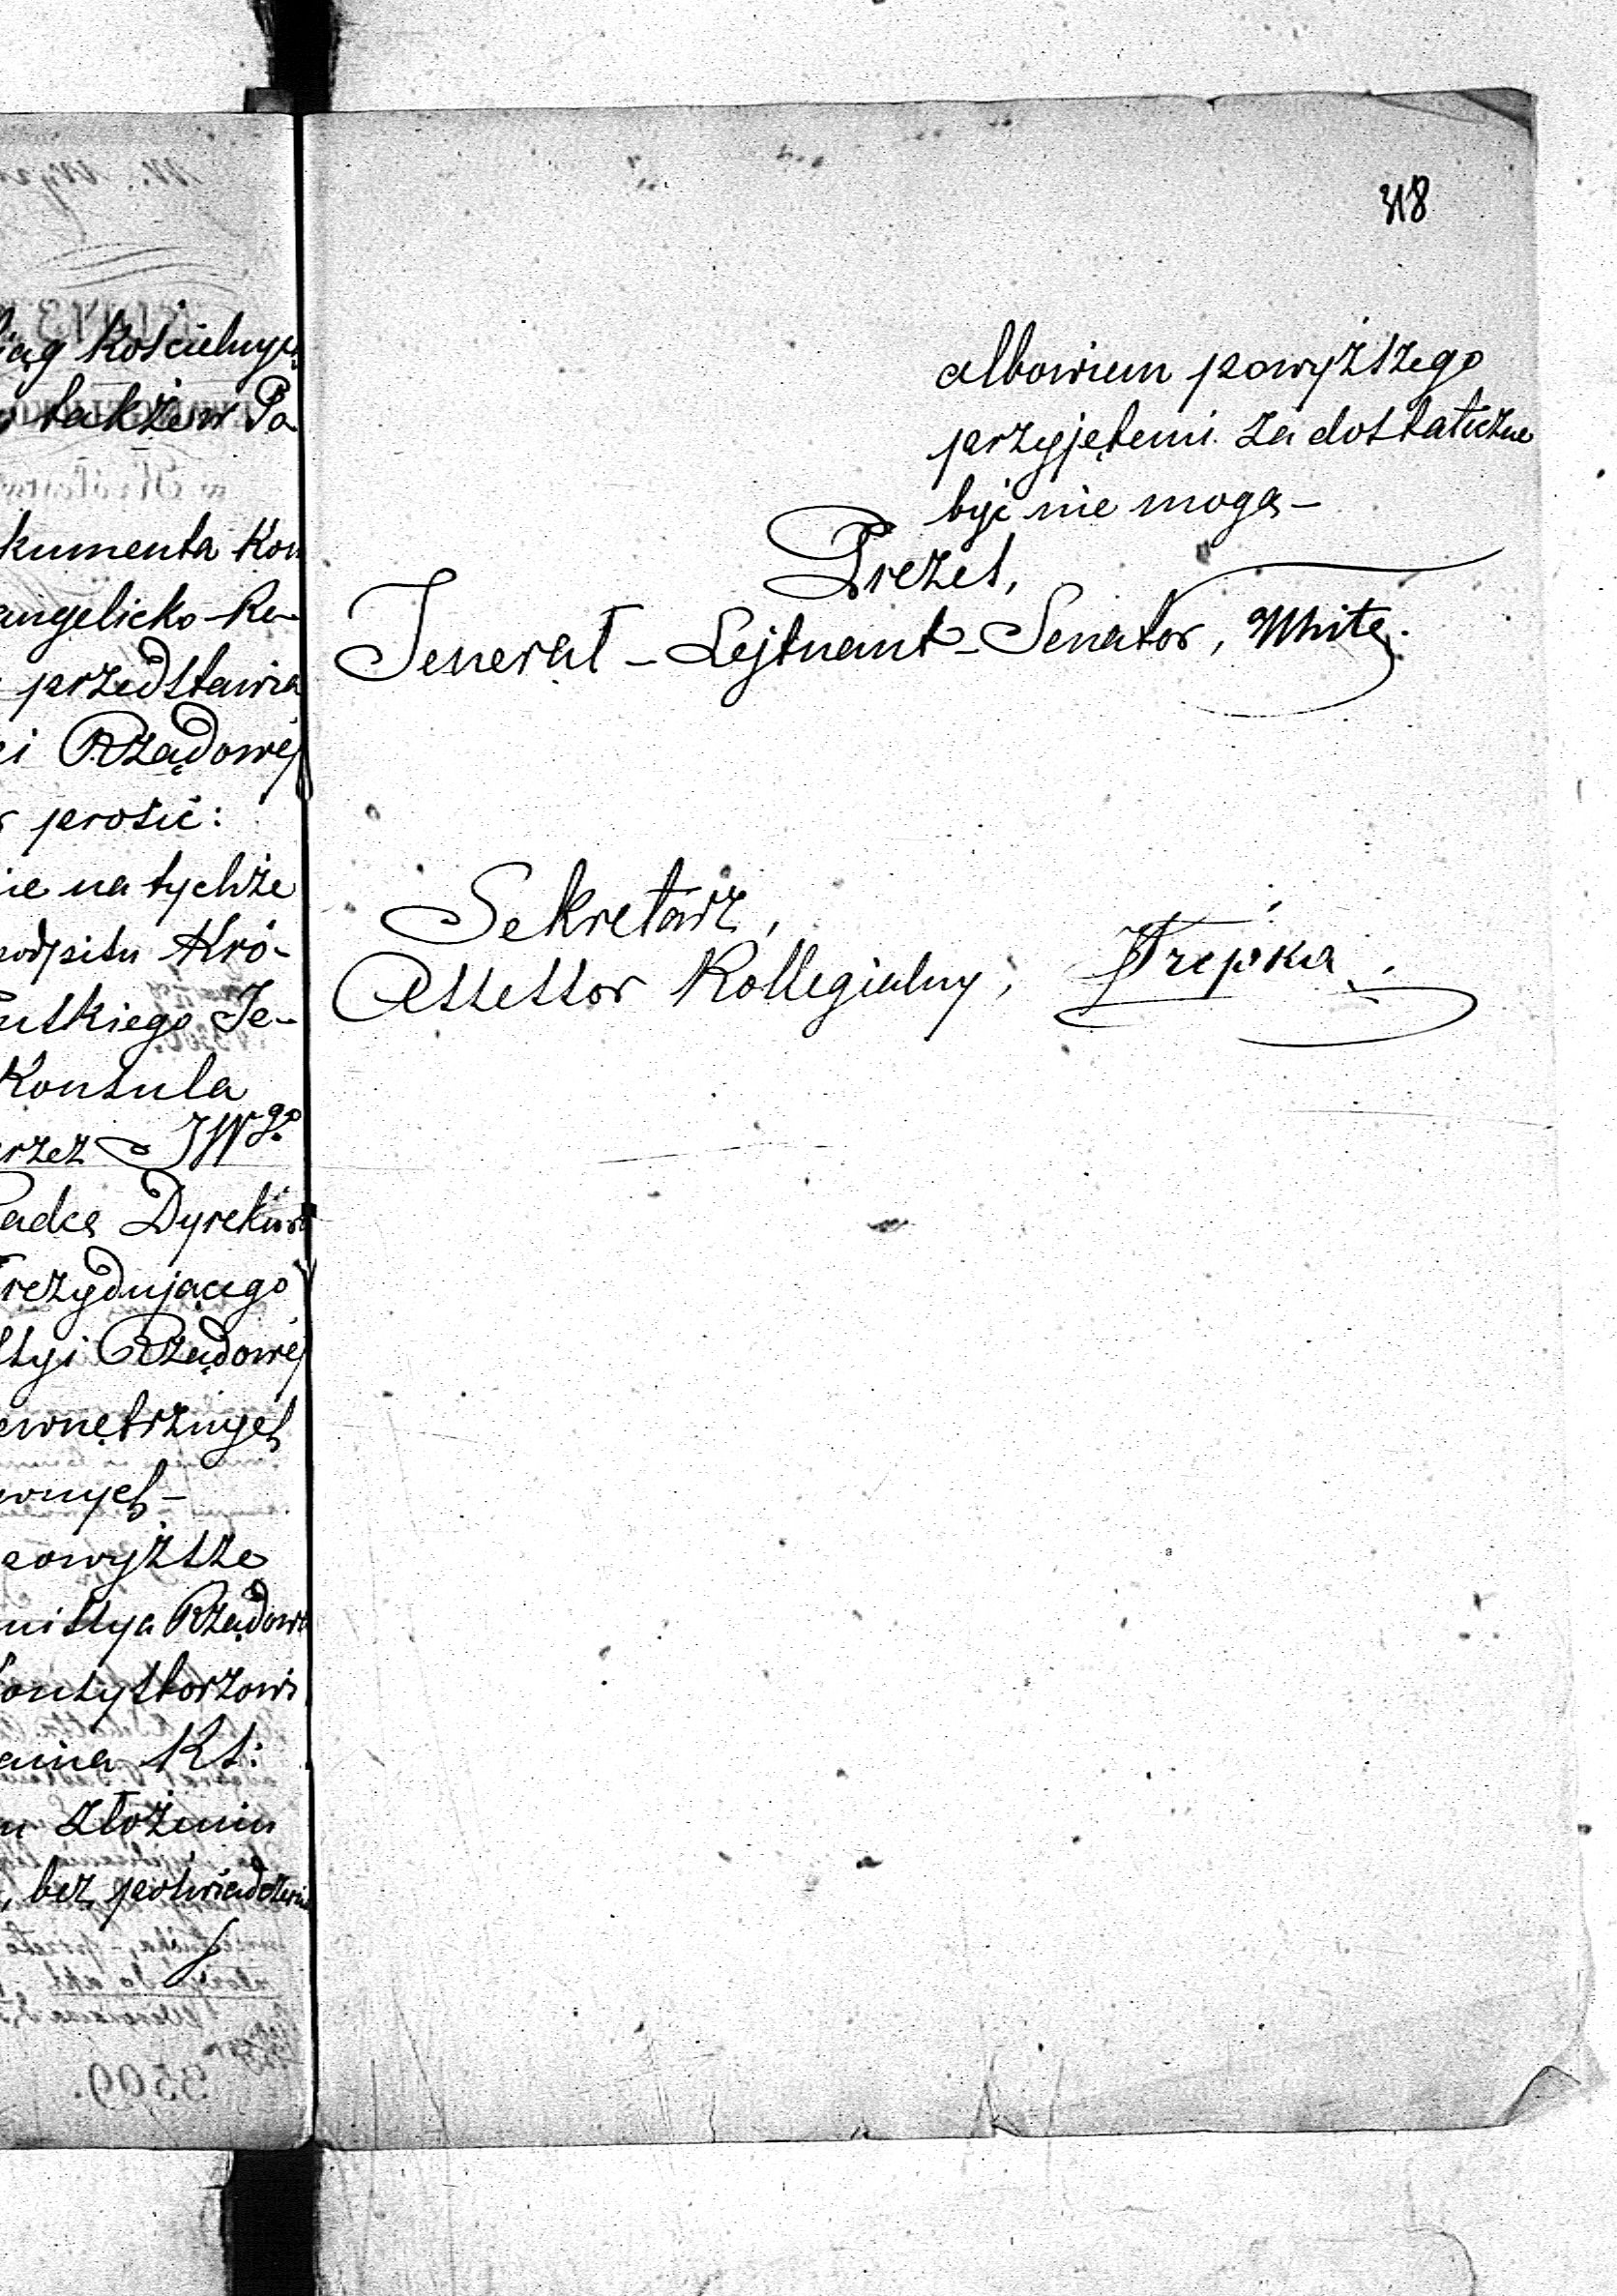 kościelnych
także w Pa
kumenta Kon
angelicko-Re-
przedstawia
i Rządowéj
prosić:
ie na tychże
podpisu Kró-
Pruskiego Je-
Konsula
przez JWgo
Radcę Dyrektora
Prezydującego
ssyi Rządowéj
ewnętrznych
wnych –
powyższe
missya Rządowa
Konsystorzowi
Ks:
złożeniu
bez poświadczenia
3509.
318
albowiem powyższego
przyjętemi za dostateczne
być nie mogą –
Prezes,
Jenerał – Lejtnant – Senator, White.
Sekretarz,
Assessor Kollegialny, Trepka